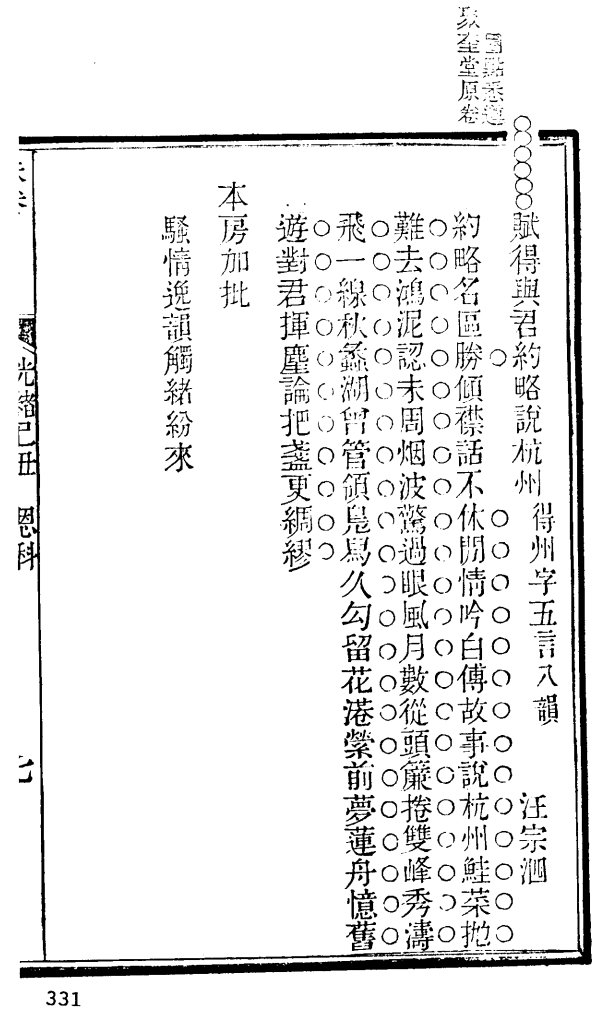 圈點悉遵
聚奎堂原卷
賦得與君約略說杭州 得州字五言八韻 汪宗泗
約略名區勝傾襟話不休閒情吟白傅故事說杭州鮭菜抛
難去鴻泥認未周烟波驚過眼風月數從頭簾捲雙峰秀濤
飛一線秋蠡湖曾管領鳧舄久勾留花港縈前夢蓮舟憶舊
遊對君揮麈論把盞更綢繆
本房加批
騷情逸韻觸緒紛來
光緒己丑 恩科
331